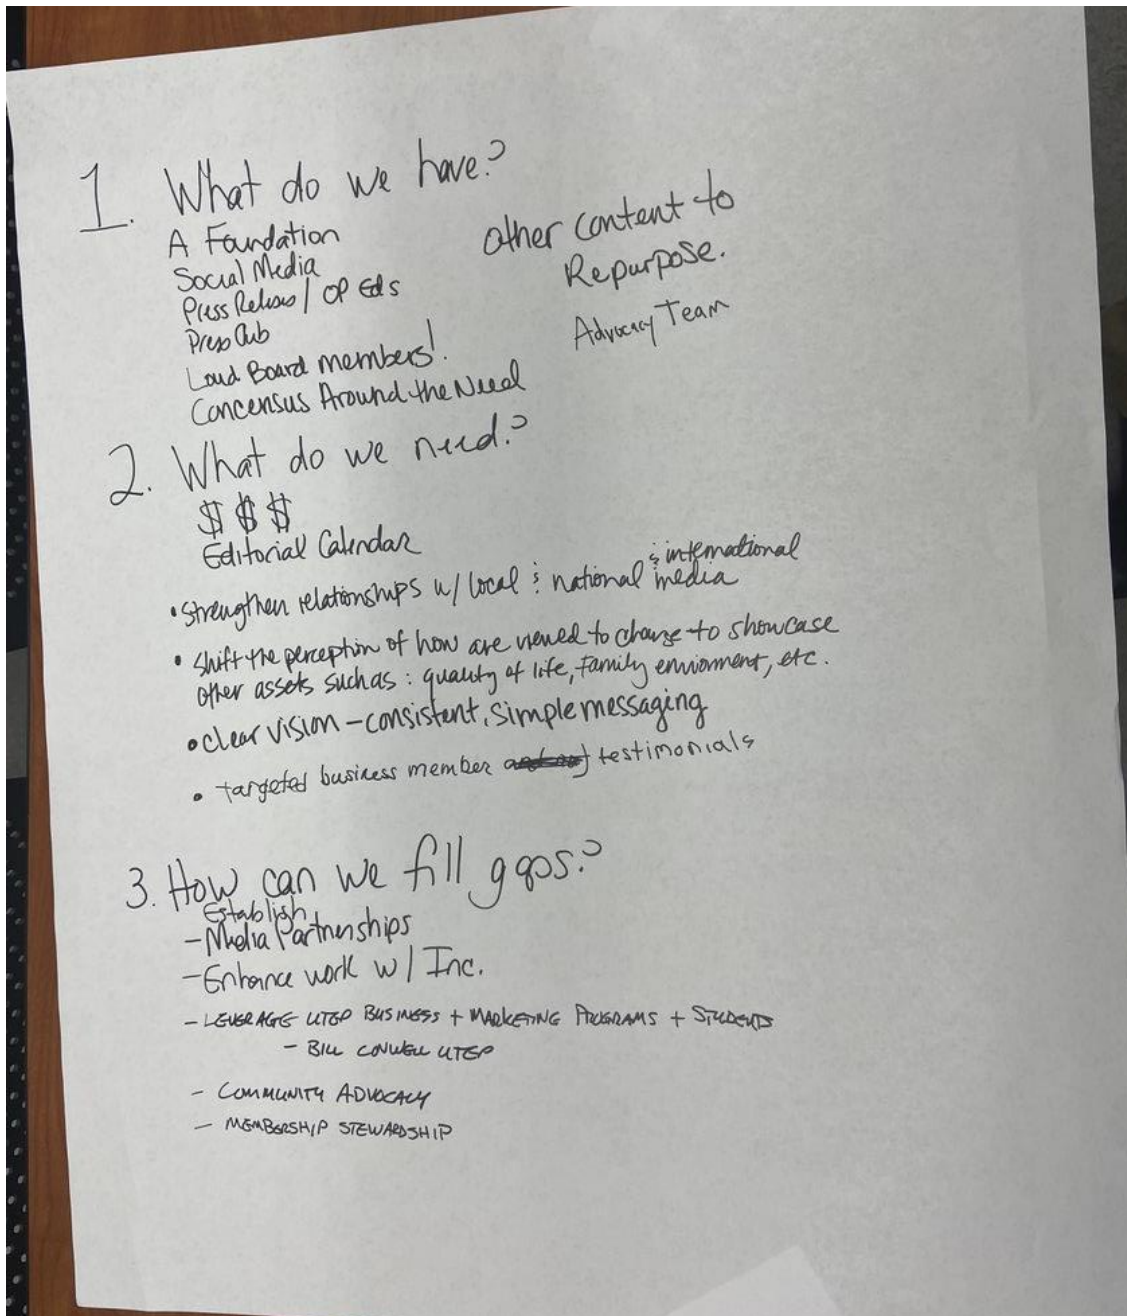 1. What do we have?
A Foundation
Social Media
Press Releases / OP Eds
Press Club
Loud Board members!
Concensus Around the Need
other content to
Repurpose.
Advocacy Team
2. What do we need?
$ $ $
Editorial Calendar
& international
• Strengthen relationships w/ local & national media
• Shift the perception of how are viewed to change to showcase
other assets such as: quality of life, family enviorment, etc.
• clear vision – consistent, simple messaging
• targeted business member testimonials
3. How can we fill gaps?
Establish
– Media Partnerships
– Enhance work w/ Inc.
– LEVERAGE UTEP BUSINESS + MARKETING PROGRAMS + STUDENTS
– BILL CONWELL UTEP
– COMMUNITY ADVOCACY
– MEMBERSHIP STEWARDSHIP